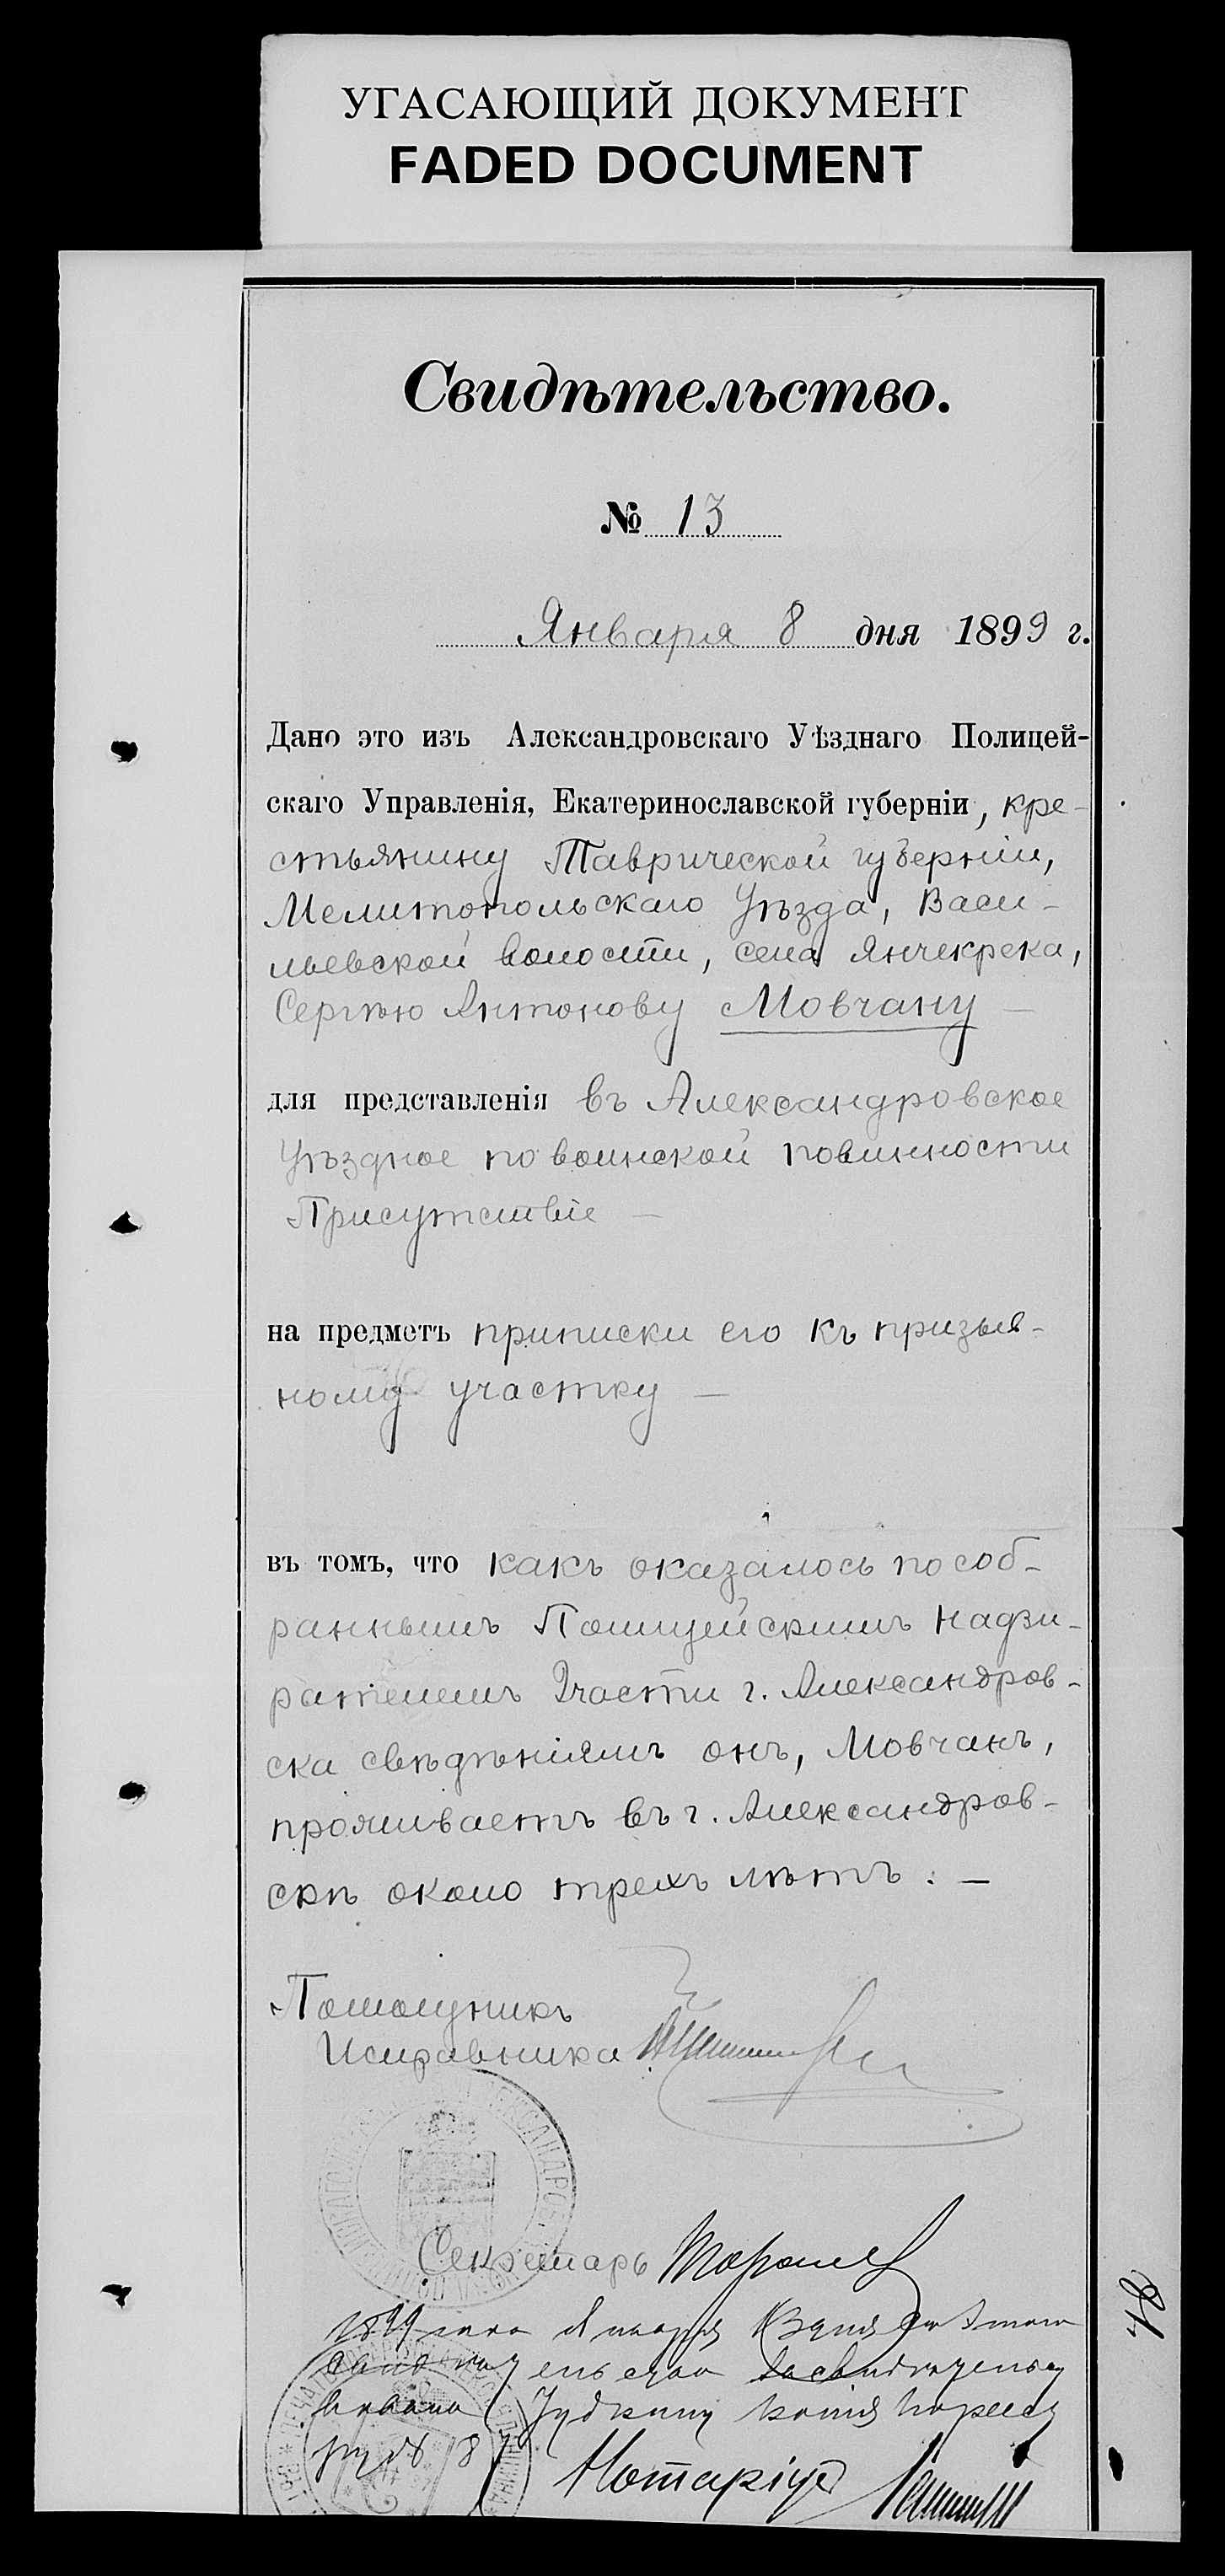 УГАСАЮЩИЙ ДОКУМЕНТ
FADED DOCUMENT
Свидѣтельство.
№ 13
Января 8 дня 1899 г.
Дано это изъ Александровскаго Уѣзднаго Полицей-
скаго Управленія, Екатеринославской губерніи, кре-
стьянину Таврической губерніи,
Мелитопольскаго Уѣзда, Васи-
льевской волости, села Янчекрека,
Сергѣю Антонову Мовчану —
для представленія въ Александровское
Уѣздное по воинской повинности
Присутствіе —
на предметъ приписки его къ призыв-
ному участку —
въ томъ, что какъ оказалось по соб-
раннымъ Полицейскимъ Надзи-
рателемъ 2 части г. Александров-
ска свѣдѣніямъ онъ, Мовчанъ,
проживаетъ въ г. Александров-
скѣ около трехъ лѣтъ. —
Помощникъ
Исправника
Секретарь
1899 года Января
копія
Нотаріусъ